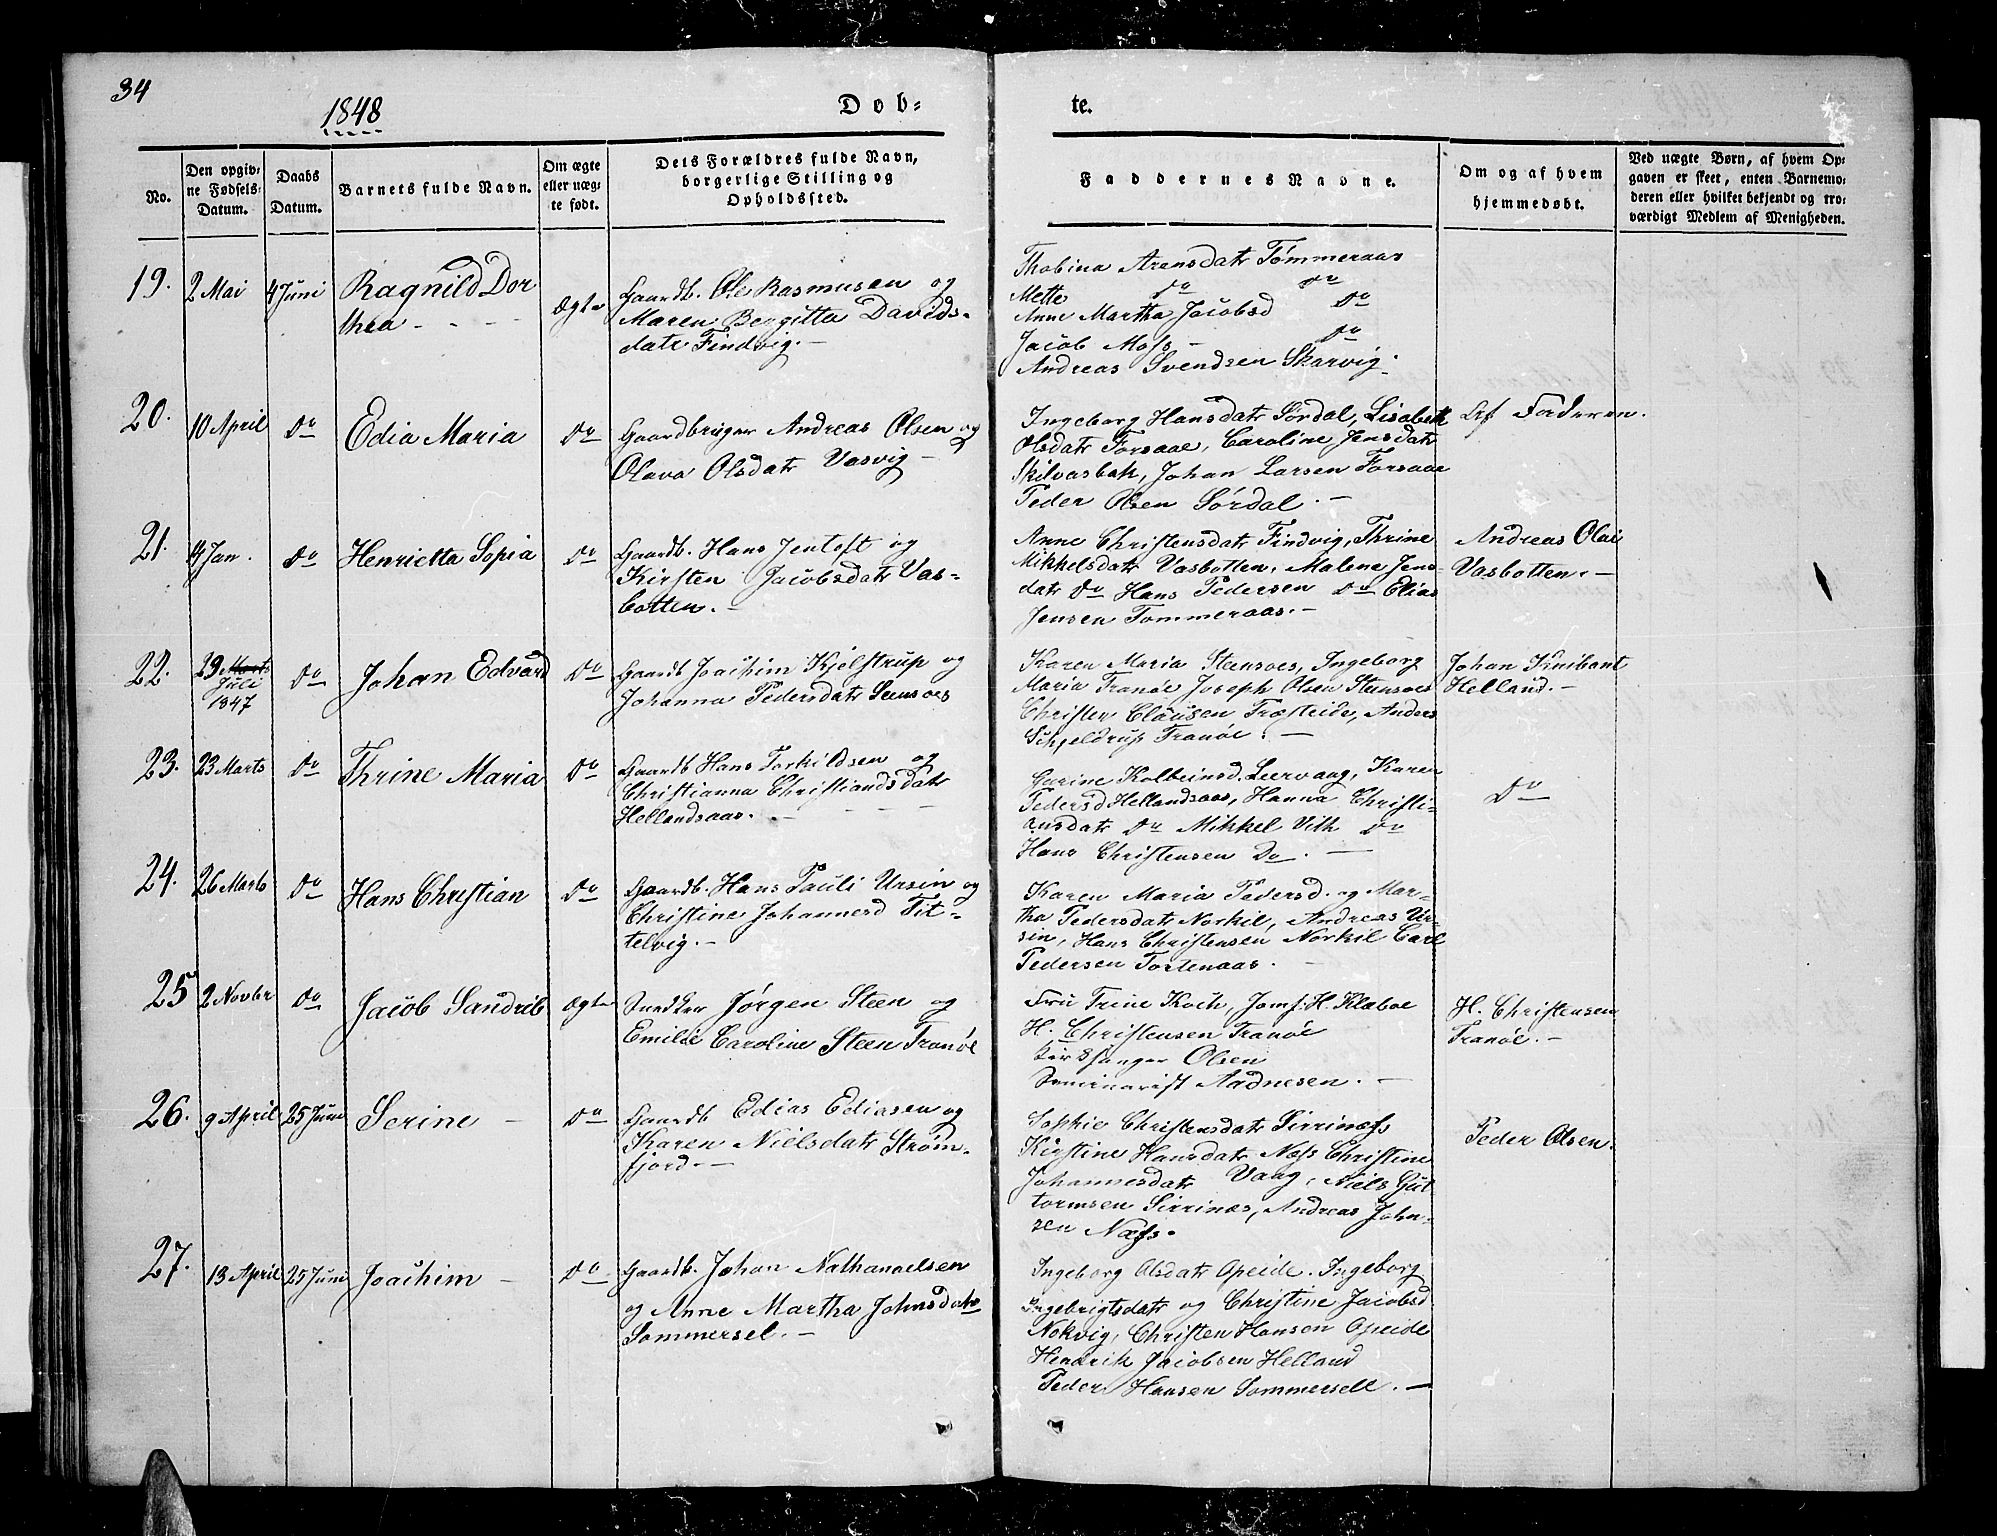 34
1848
Døb-
te.
No.
Den opgiv-
ne Fødsels-
Datum.
Daabs
Datum.
Barnets fulde Navn.
Om ægte
eller uæg-
te født.
Dets Forældres fulde Navn,
borgerlige Stilling og
Opholdssted.
Faddernes Navne.
Om og af hvem
hjemmedøbt.
Ved uægte Børn, af hvem Op-
gaven er skeet, enten Barnemo-
deren eller hvilket bekjendt og tro-
værdigt Medlem af Menigheden.
19.
2 Mai
4 Juni
Ragnild Dor
thea -
Ægte
Gaardb. Ole Rasmusen og
Maren Bergitta Davids-
datr Findvig. -
Thobina Arensdatr Tømmeraas
Mette do do
Anne Martha Jacobsd do
Jacob Moss - do
Andreas Svendsen Skarvig.
20.
10 April
do
Edia Maria
do
Gaardbruger Andreas Olsen og
Olava Olsdatr Vasvig -
Ingeborg Hansdatr Sørdal, Lisabeth
Olsdatr Forsaae, Caroline Jensdatr
Skilvasbak, Johan Larsen Forsaae
Peder Olsen Sørdal. -
Af Faderen.
21.
14 Jan.
do
Henrietta Sopia
do
Gaardb. Hans Jentoft og
Kirsten Jacobsdatr Vas-
botten. -
Anne Christensdatr Findvig, Thrine
Mikkelsdatr Vasbotten, Malene Jens-
datr do Hans Pedersen do Elias
Jensen Tommeraas. -
Andreas Olai
Vasbotten. -
22.
29 Marts
Juli
1847
do
Johan Edvard
do
Gaardb Joachim Kjelstrup og
Johanna Pedersdatr Seensoes
Karen Maria Steensoes, Ingeborg
Maria Tranöe Joseph Olsen Steensoes
Christen Clausen Træsteide, Anders
Schjeldrup Tranöe. -
Johan Knibant
Helland. -
23.
23 Marts
do
Thrine Maria
do
Gaardb Hans Torkildsen og
Christianna Christiandsdatr
Hellandsaas. -
Gurine Kolbeinsd. Leervaag, Karen
Pedersd Hellandsaas, Hanna Christi-
ansdatr do Mikkel Vith do
Hans Christensen Do. -
do
24.
26 Marts
do
Hans Christian
do
Gaardb. Hans Pauli Ursin og
Christine Johannesd Tit-
telvig. -
Karen Maria Pedersd. og Mar-
tha Pedersdatr Norkil, Andreas Ur-
sin, Hans Christensen Norkil Carl
Pedersen Tortenaas.
25
2 Novbr
do
Jacob Sandrib
Ægte
Snedker Jørgen Steen og
Emilie Caroline Steen Tranöe
Fru Trine Koch, Jomf: H. Klæboe
H. Christensen Tranöe
Kirksanger Olsen
Seminarist Aadnesen. -
H. Christensen
Tranöe. -
26.
9 April
25 Juni
Serine -
do
Gaardb Edias Ediasen og
Karen Nielsdatr Strøm-
fjord. -
Sophie Christensdatr Sirrinæss
Kirstine Hansdatr Næss Christine
Johannesdatr Vaag, Niels Gut
tormsen Sirrinæs, Andreas John-
sen Næss.
Peder Olsen.
27.
13 April
25 Juni
Joachim -
do
Gaardb. Johan Nathanaelsen
og Anne Martha Johnsdatr
Sommersel. -
Ingeborg Olsdatr Opeide. Ingeborg
Ingebrigtsdatr og Christine Jacobsd
Nokvig, Christen Hansen Opeide
Hendrik Jacobsen Helland
Peder Hansen Sommersell. -